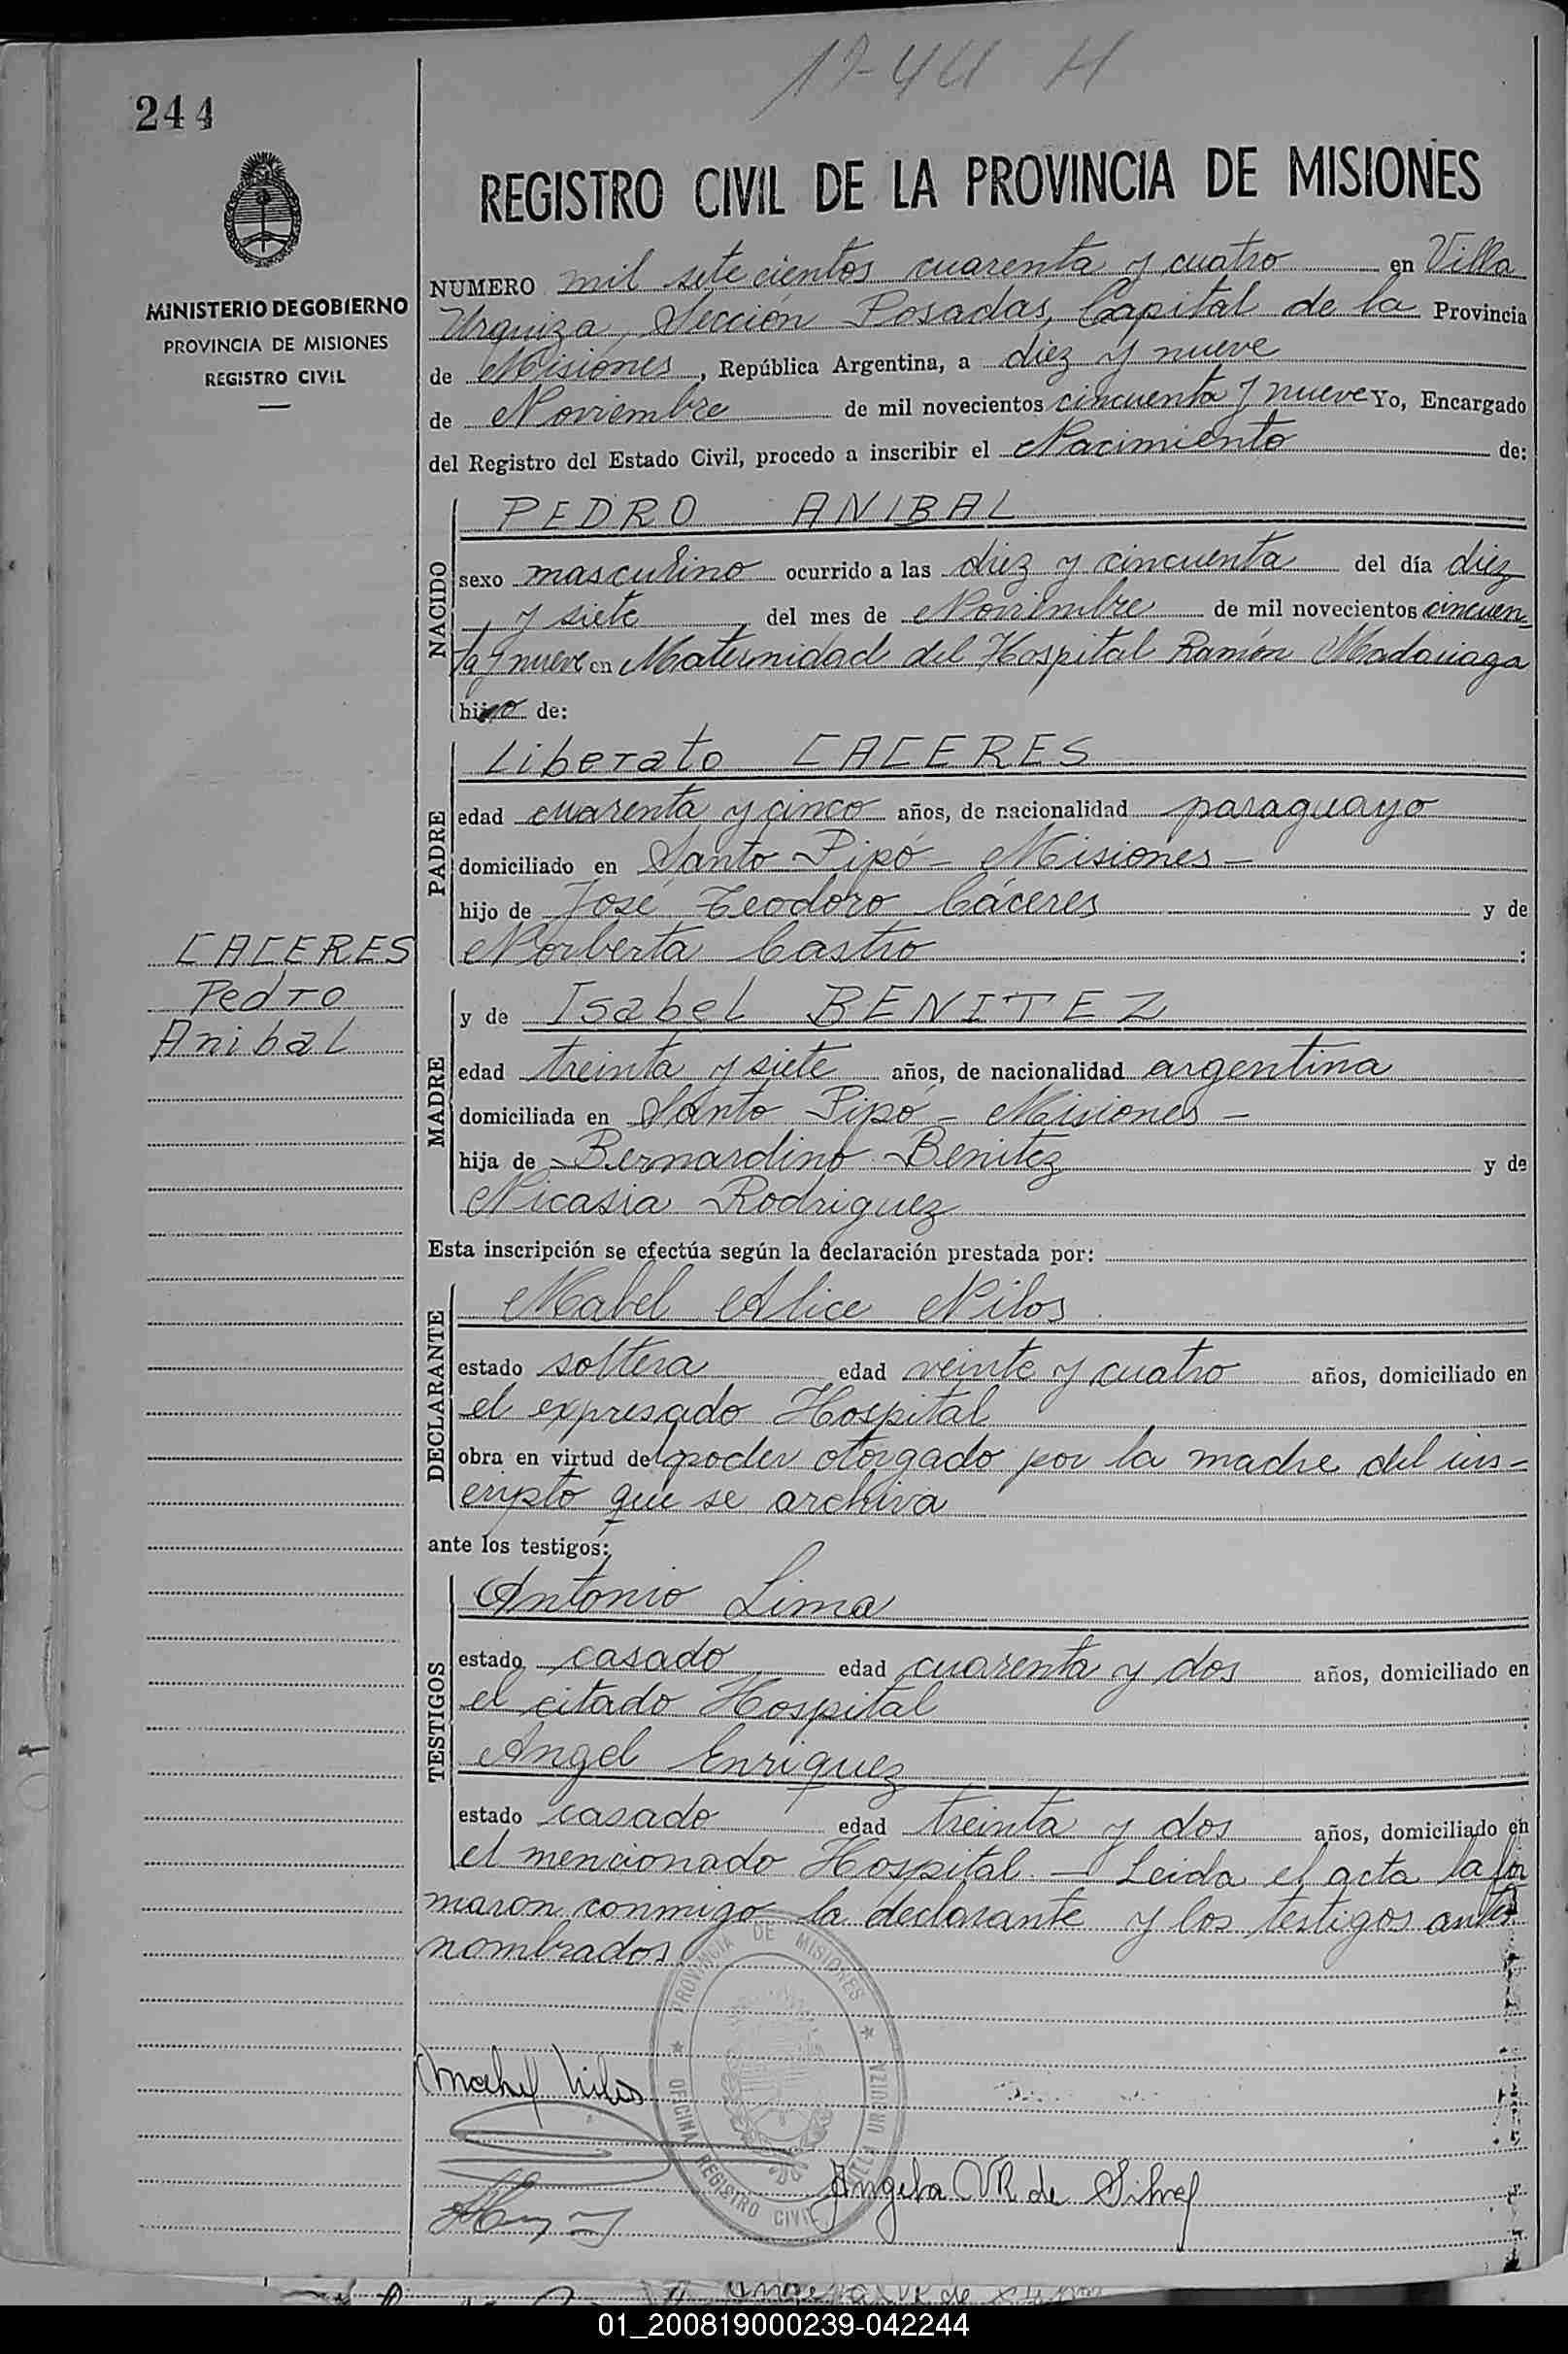 17-44 H
244
MINISTERIO DE GOBIERNO
PROVINCIA DE MISIONES
REGISTRO CIVIL
REGISTRO CIVIL DE LA PROVINCIA DE MISIONES
NUMERO mil setecientos cuarenta y cuatro en Villa
Urquiza, Sección Posadas, Capital de la Provincia
de Misiones, República Argentina, a diez y nueve
de Noviembre de mil novecientos cincuenta y nueve Yo, Encargado
del Registro del Estado Civil, procedo a inscribir el Nacimiento de:
NACIDO
PEDRO ANIBAL
sexo masculino ocurrido a las diez y cincuenta del día diez
y siete del mes de Noviembre de mil novecientos cincuen
ta y nueve en Maternidad del Hospital Ramón Madariaga
hijo de:
PADRE
Liberato CACERES
edad cuarenta y cinco años, de nacionalidad paraguayo
domiciliado en Santo Pipó - Misiones -
hijo de José Teodoro Cáceres y de
Norberta Castro :
CACERES
Pedro
Anibal
MADRE
y de Isabel BENITEZ
edad treinta y siete años, de nacionalidad argentina
domiciliada en Santo Pipó - Misiones -
hija de Bernardino Benitez y de
Nicasia Rodriguez
Esta inscripción se efectúa según la declaración prestada por:
DECLARANTE
Mabel Alice Nilos
estado soltera edad veinte y cuatro años, domiciliado en
el expresado Hospital
obra en virtud del poder otorgado por la madre del ins-
cripto que se archiva
ante los testigos:
TESTIGOS
Antonio Lima
estado casado edad cuarenta y dos años, domiciliado en
el citado Hospital
Angel Enriquez
estado casado edad treinta y dos años, domiciliado en
el mencionado Hospital. - Leida el acta la fir
maron conmigo la declarante y los testigos antes
nombrados
PROVINCIA DE MISIONES
OFICINA REGISTRO CIVIL VILLA URQUIZA
Mabel Nilos
Angela VR de Silva
01_200819000239-042244